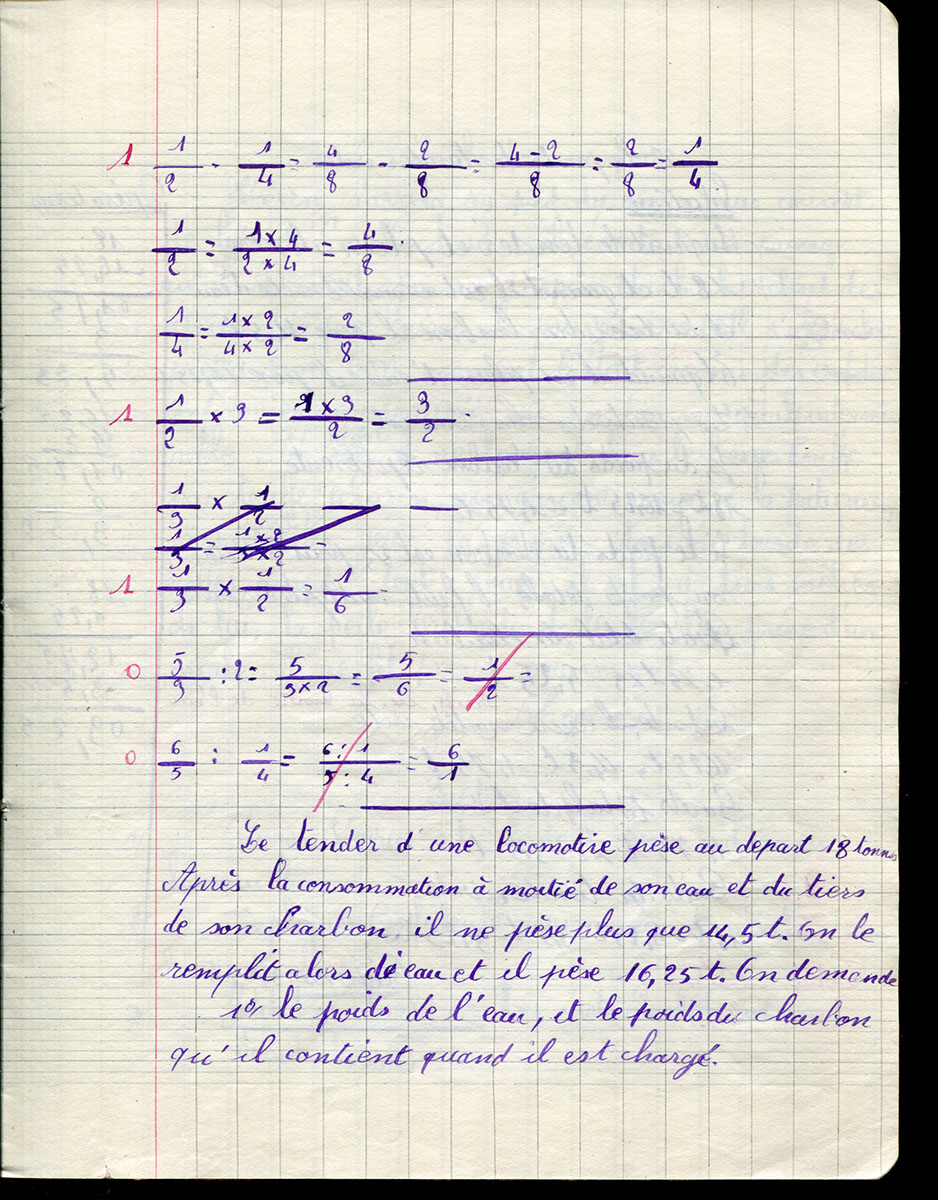 1 1/2 - 1/4 = 4/8 - 2/8 = 4-2/8 = 2/8 = 1/4
1/2 = 1×4/2×4 = 4/8.
1/4 = 1×2/4×2 = 2/8
1 1/2 × 3 = 1×3/2 = 3/2.
1/3 × 1/2
1/3 = 1×2/3×2 =
1 1/3 × 1/2 = 1/6
0 5/3 : 2 = 5/3×2 = 5/6 = 1/2 =
0 6/5 : 1/4 = 6:1/5:4 = 6/1
Le tender d'une locomotive pèse au depart 18 tonnes
Après la consommation à moitié de son eau et du tiers
de son charbon il ne pèse plus que 14,5 t. On le
remplit alors d'eau et il pèse 16,25 t. On demande
1º, le poids de l'eau, et le poids du charbon
qu'il contient quand il est chargé.